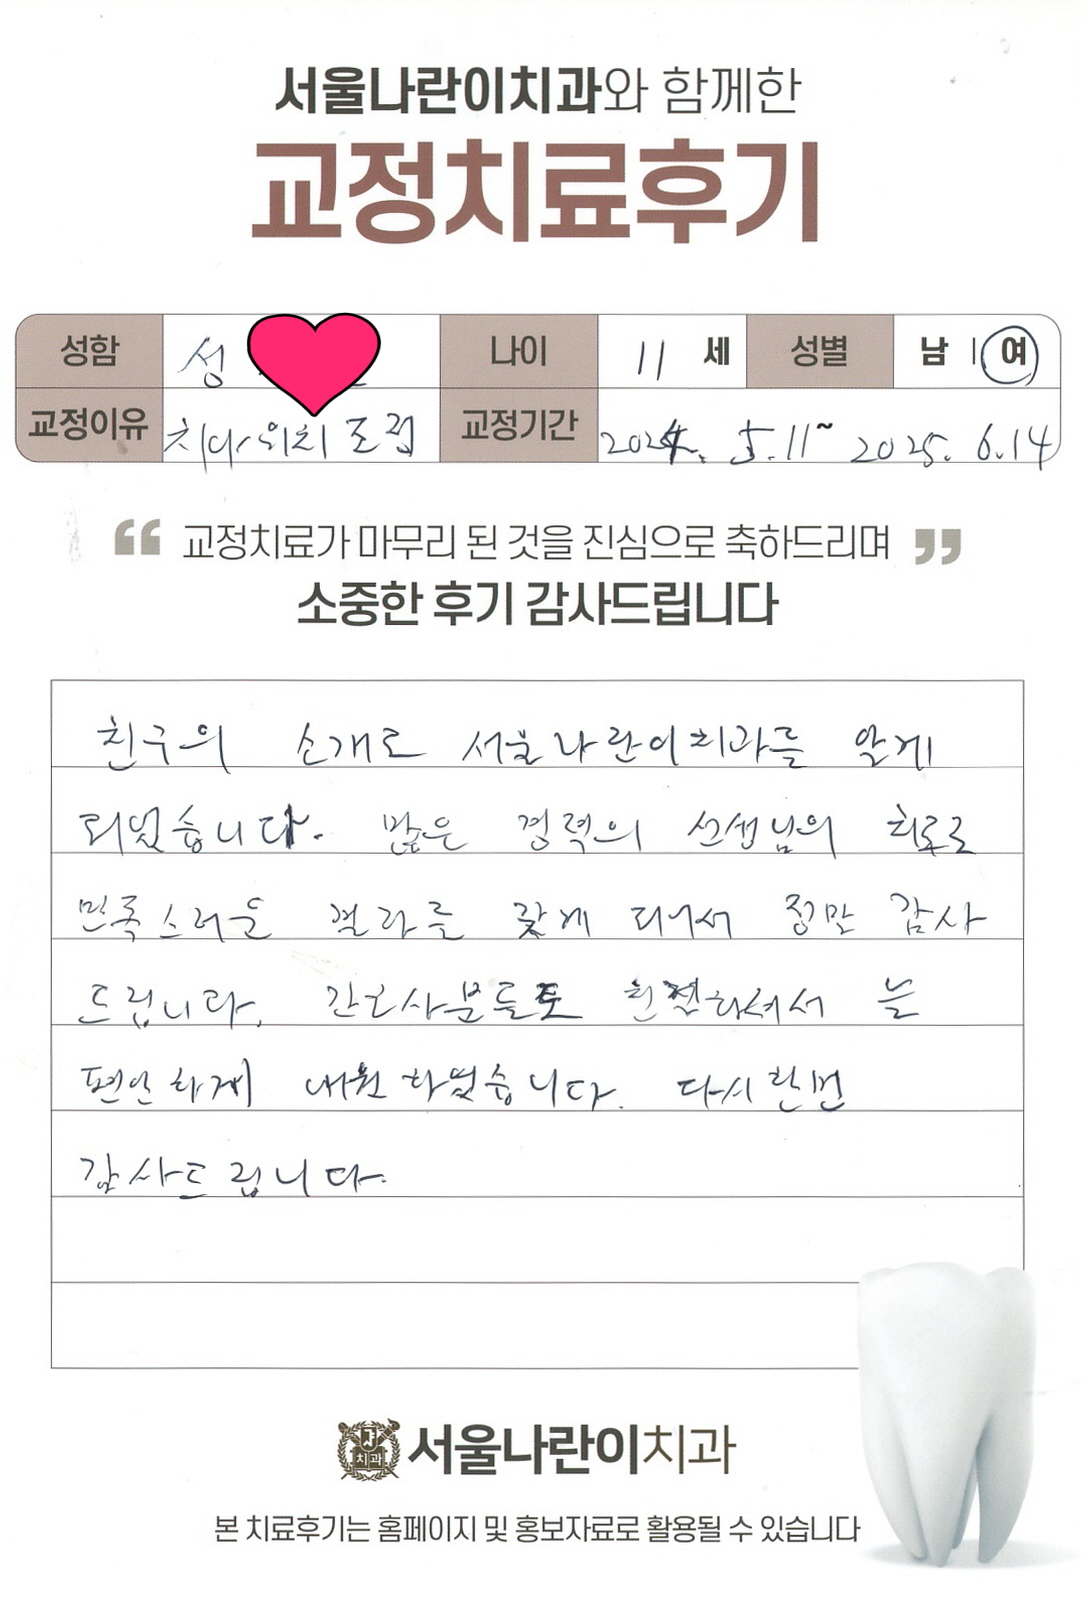 서울나란이치과와 함께한
교정치료후기
성함 성 나이 11 세 성별 남 | 여
교정이유 치아위치 교정기간 2024. 5.11~ 2025. 6.14
“ 교정치료가 마무리 된 것을 진심으로 축하드리며 ”
소중한 후기 감사드립니다
친구의 소개로 서울나란이치과를 알게
되었습니다. 많은 경력의 선생님의 치료로
만족스러운 결과를 갖게 되어서 정말 감사
드립니다. 간호사분들도 친절하셔서 늘
편안하게 내원하였습니다. 다시한번
감사드립니다.
치과
서울나란이치과
본 치료후기는 홈페이지 및 홍보자료로 활용될 수 있습니다